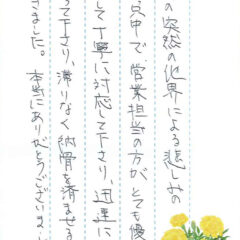 の突然の他界による悲しみの
只中で、営業担当の方が、とても優
して丁寧に対応して下さり、迅速に
って下さり、滞りなく納骨を済ませる
きました。本当にありがとうございまし